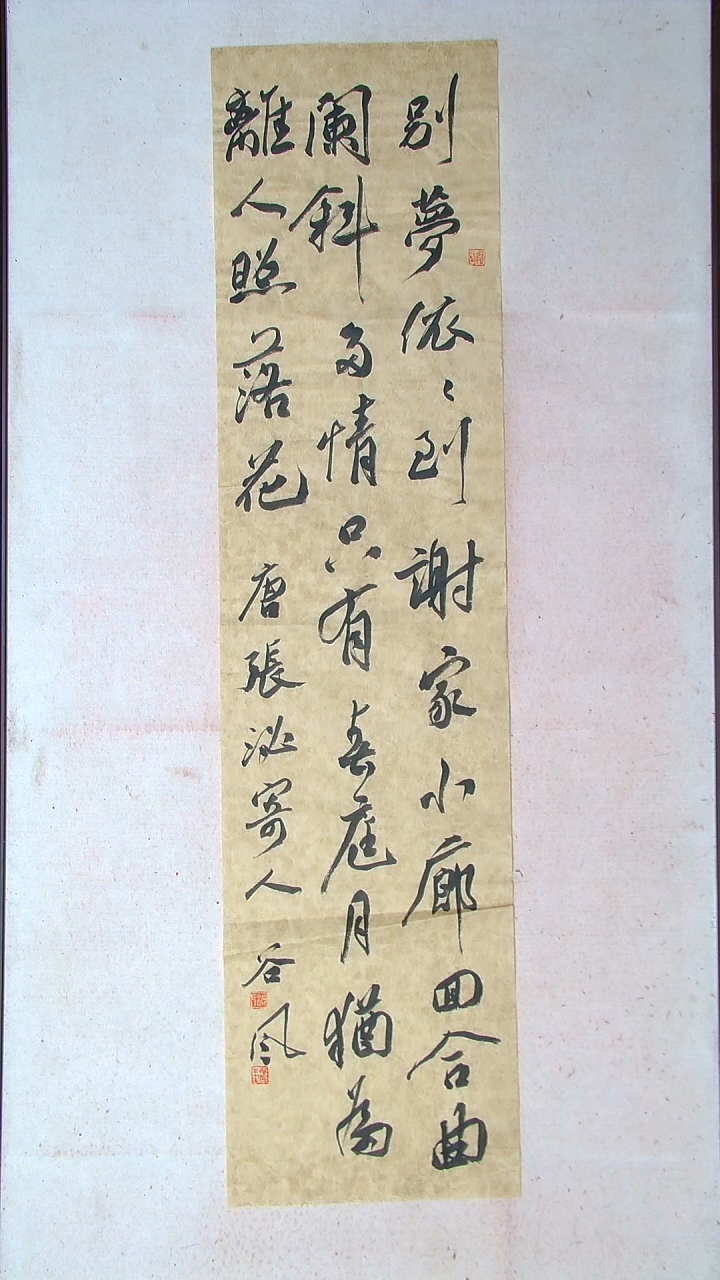 別夢依〻到謝家小廊回合曲
闌斜多情只有春庭月猶為
離人照落花 唐張泌寄人 谷風